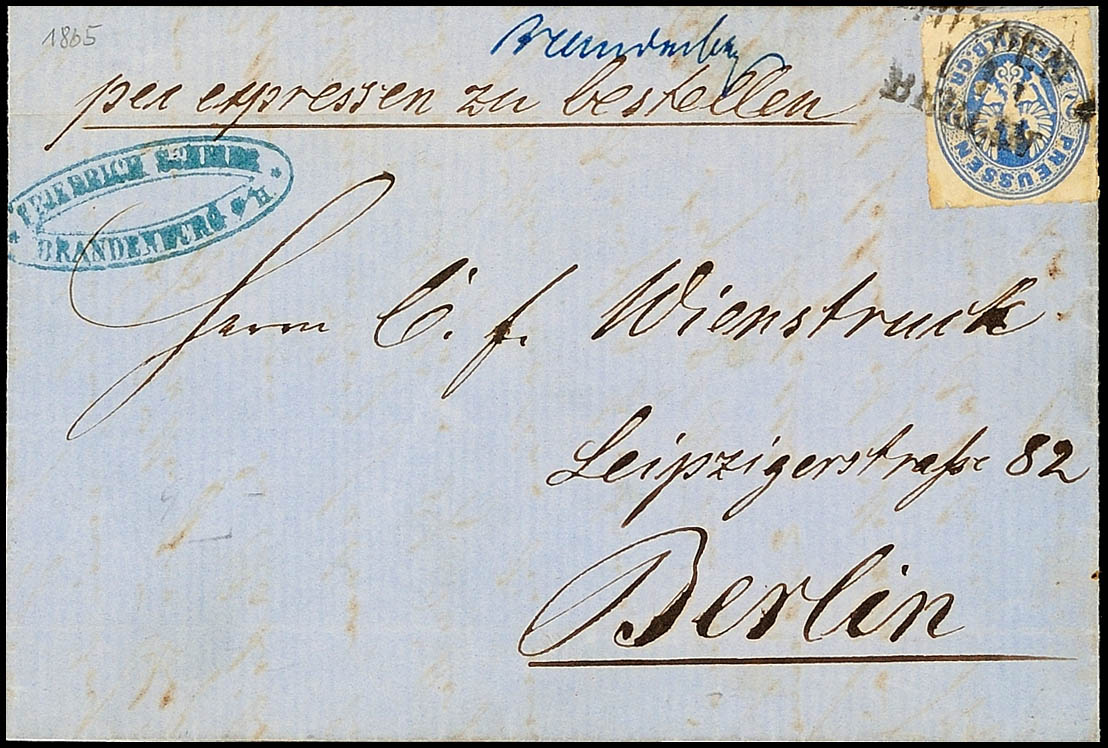 1865
Brandenburg
per expressen zu bestellen
FRIEDRICH
BRANDENBURG a/H.
PREUSSEN
Herrn C. F. Wienstruck
Leipzigerstraße 82
Berlin